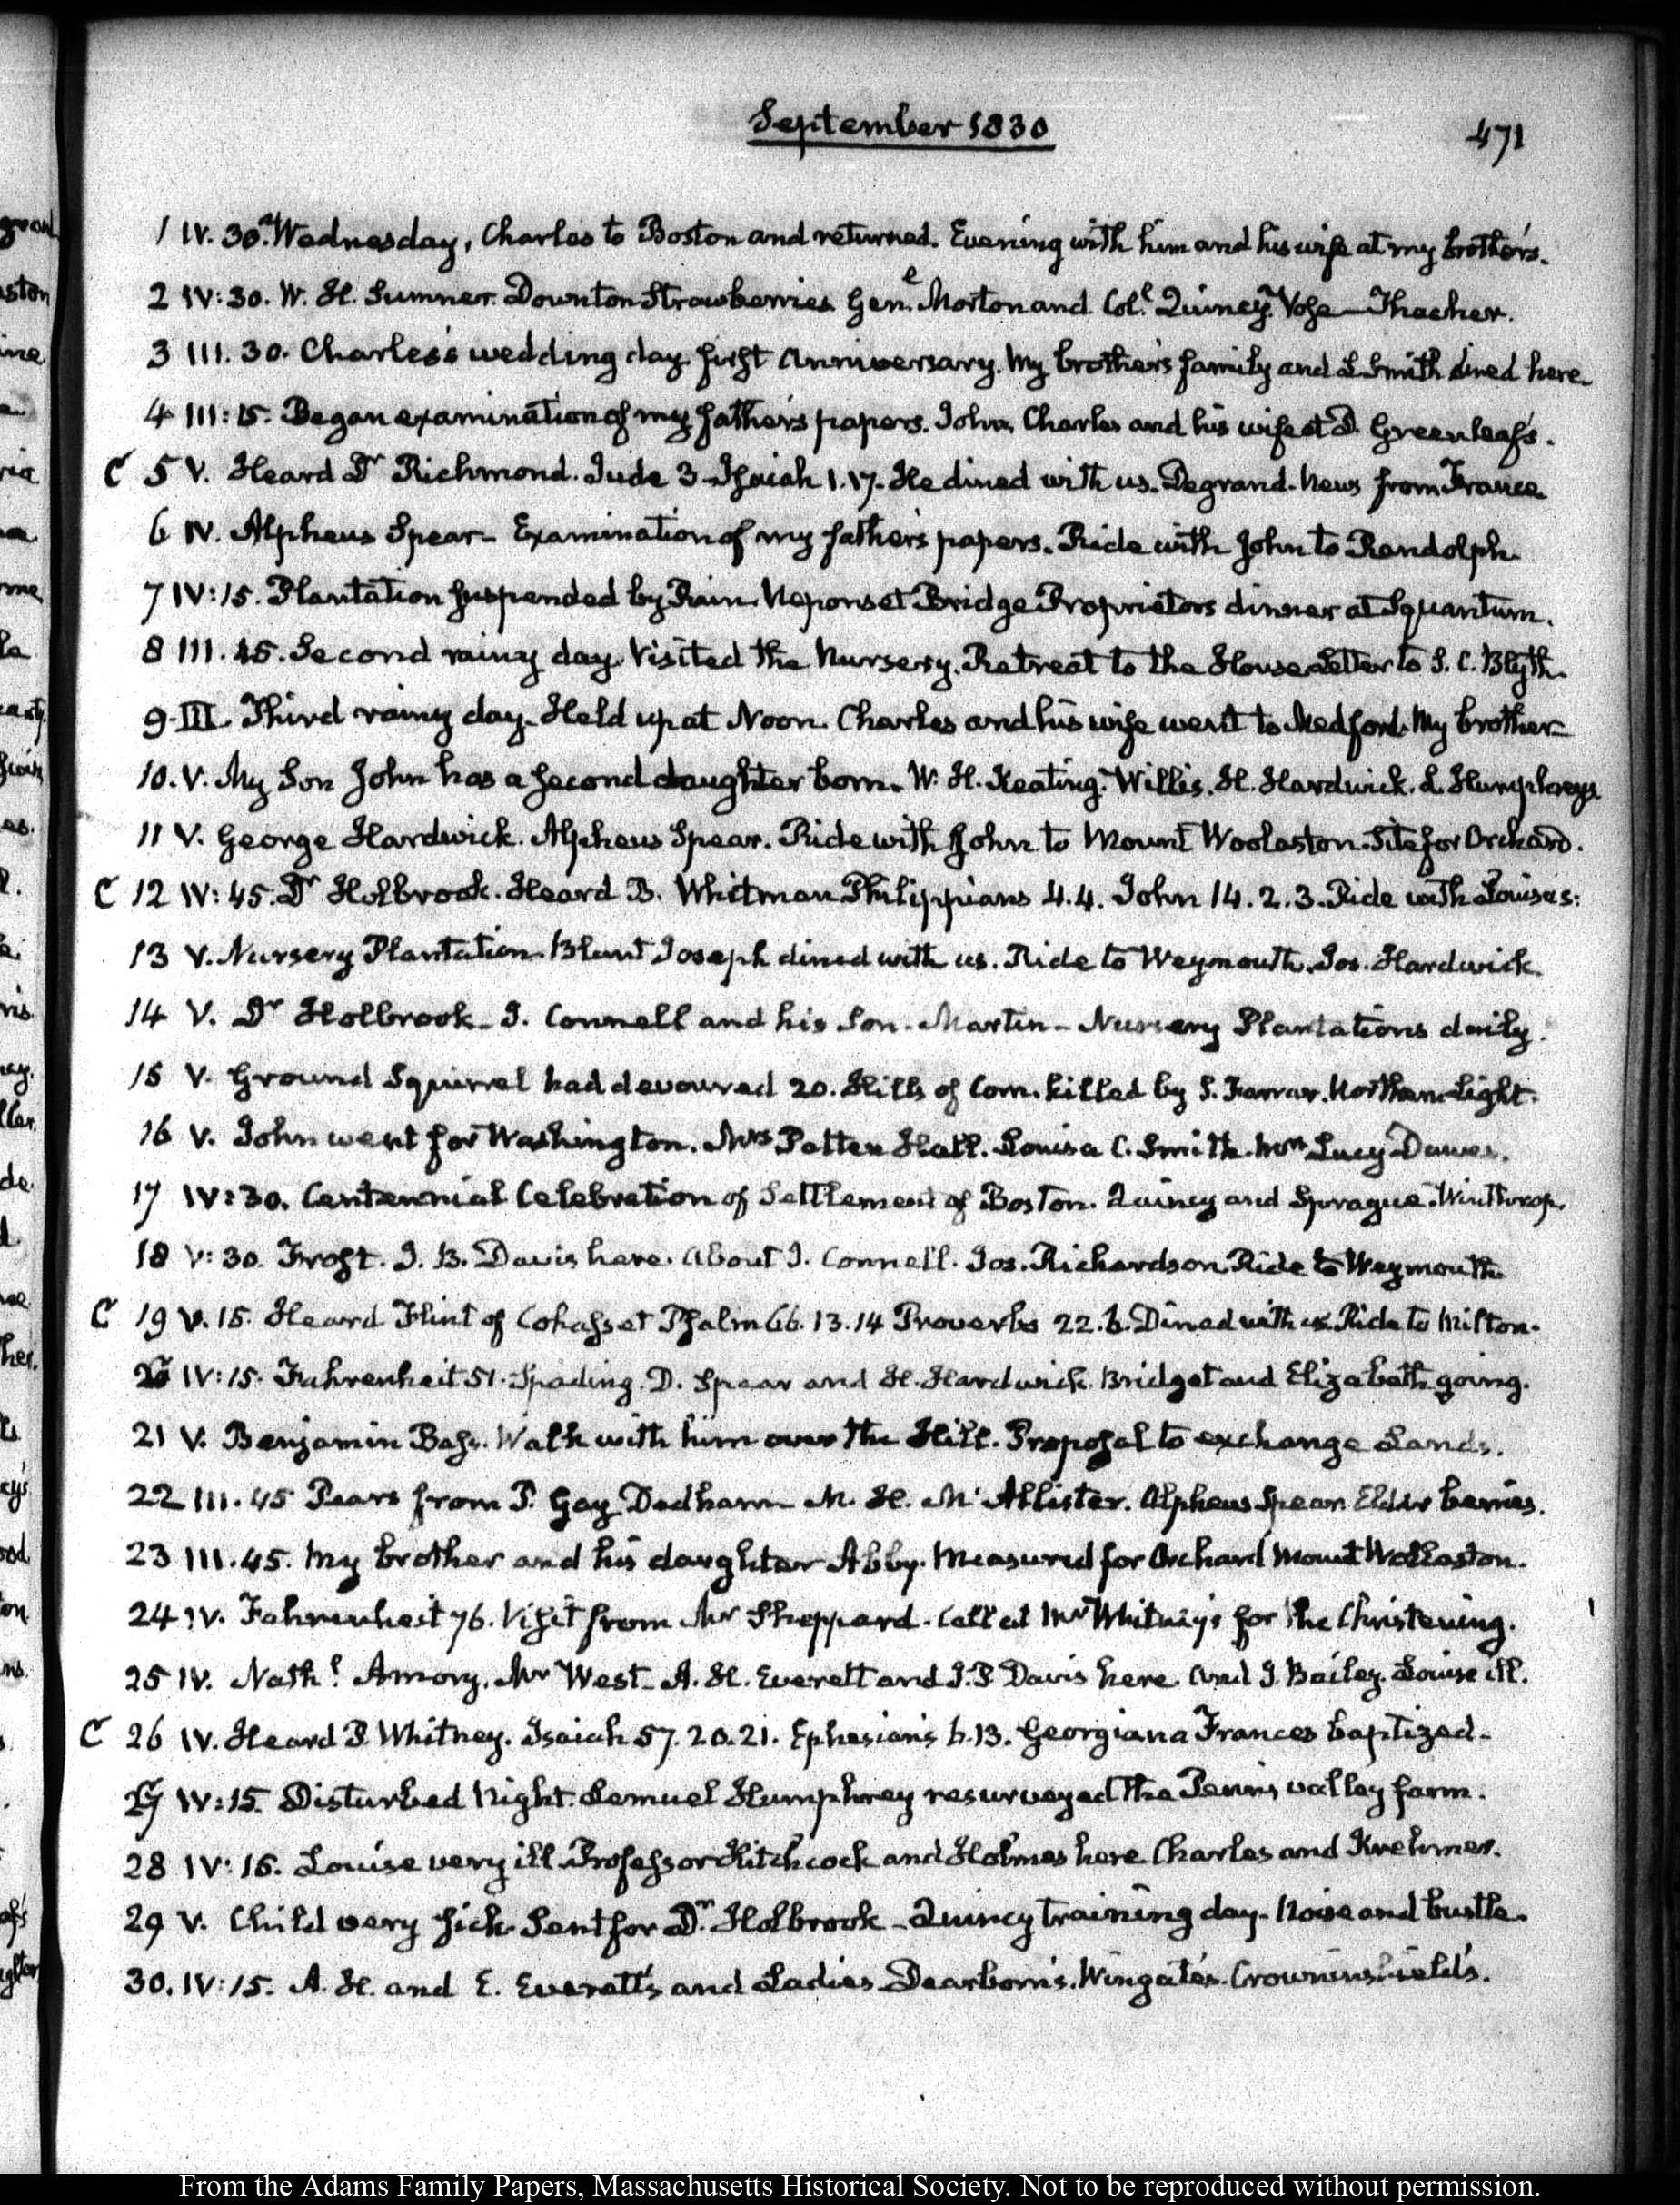 September 1830
471
1 IV. 30. Wednesday, Charles to Boston and returned. Evening with him and his wife at my brother's.
2 IV:30. W. H. Sumner. Downton Strawberries Gen.l Morton and Col.l Quincy. Vose—Thacher.
3 III. 30. Charles's wedding day first anniversary. My brother's family and L Smith dined here.
4 III:15. Began examination of my father's papers. John, Charles and his wife at D. Greenleaf's.
C 5 V. Heard Dr Richmond. Jude 3. Isaiah 1.17. He dined with us. Degrand. News from France.
6 IV. Alpheus Spear. Examination of my father's papers. Ride with John to Randolph.
7 IV:15. Plantation suspended by Rain. Neponset Bridge Proprietors dinner at Squantum.
8 III. 45. Second rainy day. Visited the Nursery. Retreat to the House Letter to S. C. Blyth.
9. III. Third rainy day. Held up at Noon. Charles and his wife went to Medford. My brother
10. V. My Son John has a second daughter born. W. H. Keating. Willis. H. Hardwick. L. Humphreys
11 V. George Hardwick. Alpheus Spear. Ride with John to Mount Woolaston. Site for Orchard.
C 12 IV:45. Dr Holbrook. Heard B. Whitman Philippians 4.4. John 14.2.3. Ride with Louisa S:
13 V. Nursery Plantation. Blunt Joseph dined with us. Ride to Weymouth. Jos. Hardwick.
14 V. Dr Holbrook. J. Connell and his Son. Martin. Nursery Plantations daily.
15 V. Ground Squirrel had devoured 20. Hills of Corn. killed by S. Farrar. Northern Light.
16 V. John went for Washington. Mrs Patten Hall. Louisa C. Smith. Mrs Lucy Dawes.
17 IV:30. Centennial Celebration of Settlement of Boston. Quincy and Sprague. Winthrop.
18 V:30. Frost. J. B. Davis here. About J. Connell. Jos. Richardson Ride to Weymouth
C 19 V. 15. Heard Flint of Cohasset Psalm 66. 13.14 Proverbs 22.6. Dined with us. Ride to Milton.
20 IV:15. Fahrenheit 51. Spading. D. Spear and H. Hardwick. Bridget and Elizabeth going.
21 V. Benjamin Bass. Walk with him over the Hill. Proposal to exchange Lands.
22 III. 45 Pears from P. Gay Dedham M. H. Mc Allister. Alpheus Spear. Elder berries.
23 III. 45. My brother and his daughter Abby. Measured for Orchard Mount Wollaston.
24 IV. Fahrenheit 76. Visit from Mr Sheppard. Call at Mr Whitney's for the Christening.
25 IV. Nathl Amory. Mr West. A. H. Everett and J. P. Davis here and J. Bailey. Louise ill.
C 26 IV. Heard P. Whitney. Isaiah 57. 20.21. Ephesians 6.13. Georgiana Frances baptized.
27 IV:15. Disturbed Night. Lemuel Humphrey resurveyed the Penn's valley farm.
28 IV:15. Louise very ill. Professor Hitchcock and Holmes here Charles and Krehmer.
29 V. Child very sick. Sent for Dr Holbrook. Quincy training day. Noise and bustle.
30. IV:15. A. H. and E. Everett's and Ladies Dearborn's. Wingate's. Crowninshield's.
From the Adams Family Papers, Massachusetts Historical Society. Not to be reproduced without permission.